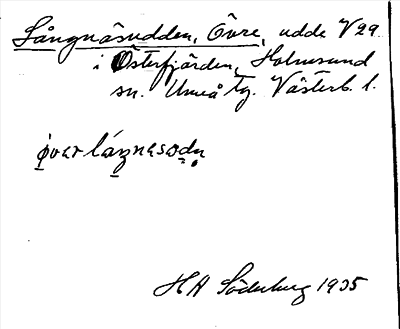 Långnäsudden, Övre, udde V 29.
i Österfjärden, Holmsund
sn. Umeå tg. Västerb. l.
HA Söderberg 1935